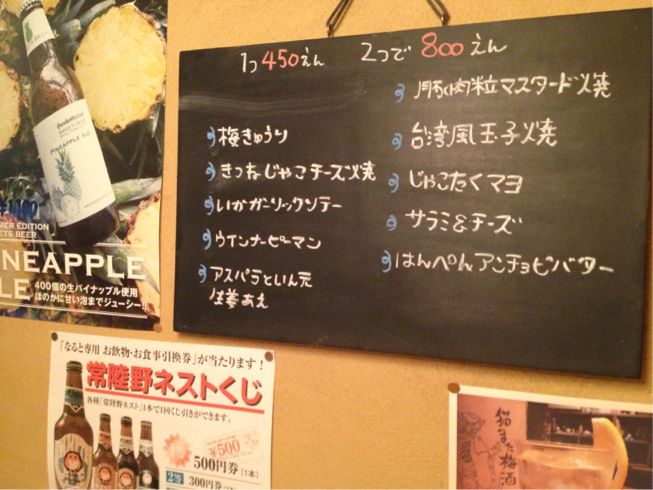 1つ450えん 2つで 800えん
梅きゅうり
きつねじゃこチーズ焼
いかガーリックソテー
ウインナーピーマン
アスパラといん元
生姜あえ
豚肉粒マスタード焼
台湾風玉子焼
じゃこたくマヨ
サラミ&チーズ
はんぺんアンチョビバター
PINEAPPLE ALE
¥1100
MER EDITION
ETS BEER
INEAPPLE
LE
400個の生パイナップル使用
ほのかに甘い泡までジューシー!!
「なると専用 お飲物・お食事引換券」が当たります!
常陸野ネストくじ
各種「常陸野ネスト」1本で1回くじ引きができます。
¥500
500円券(1本)
2等
300円券
猫また梅酒